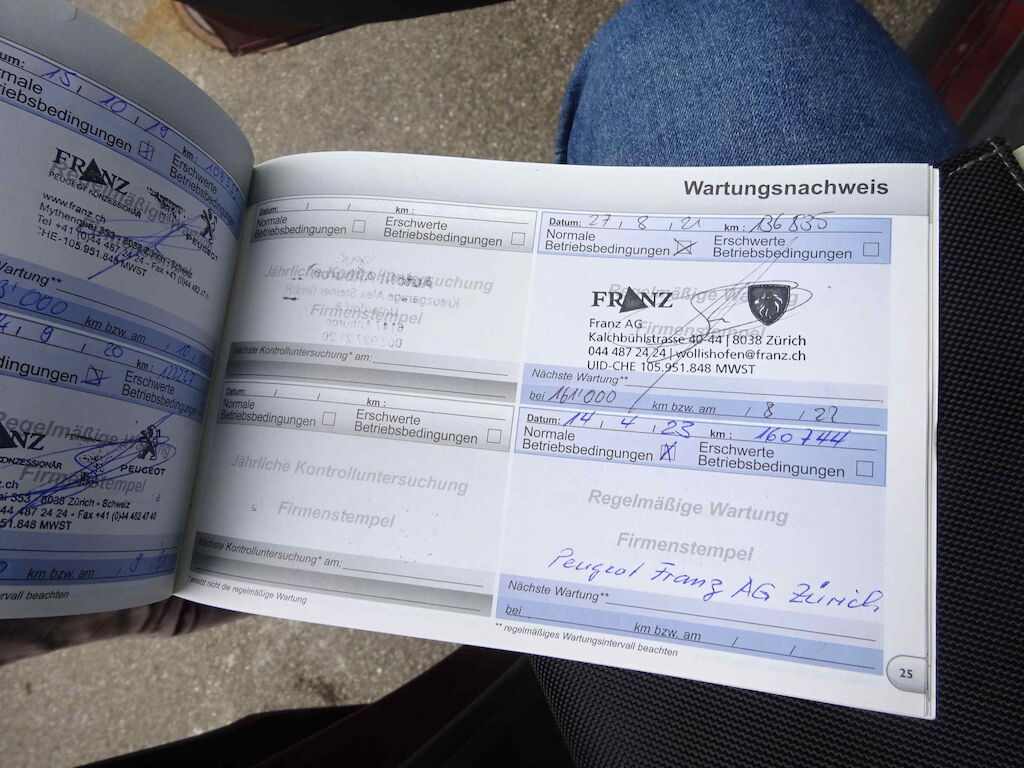 um: 15 , 10 , 19
rmale
riebsbedingungen
km:
Erschwerte
Betriebsbedingungen
FRANZ
PEUGEOT KONZESSIONÄR
PEUGEOT
www.franz.ch
Mythenquai 353 - 8038 Zürich - Schweiz
Tel +41 (0)44 487 24 24 - Fax +41 (0)44 482 47 40
CHE-105.951.848 MWST
Wartung**
3'000
km bzw. am
9 , 20
km:
edingungen
Erschwerte
Betriebsbedingungen
NZ
ONZESSIONÄR
PEUGEOT
Firmenstempel
z.ch
ai 353 - 8038 Zürich - Schweiz
44 487 24 24 - Fax +41 (0)44 482 47 40
.951.848 MWST
km bzw. am
ervall beachten
Wartungsnachweis
Datum: / / km :
Normale
Betriebsbedingungen
Erschwerte
Betriebsbedingungen
Jährliche Kontrolluntersuchung
Firmenstempel
Nächste Kontrolluntersuchung* am:
Datum: / / km :
Normale
Betriebsbedingungen
Erschwerte
Betriebsbedingungen
Jährliche Kontrolluntersuchung
Firmenstempel
Nächste Kontrolluntersuchung* am:
* ersetzt nicht die regelmäßige Wartung
Datum: 27 , 8 , 21 km : 136835
Normale
Betriebsbedingungen
Erschwerte
Betriebsbedingungen
Regelmäßige Wartung
Firmenstempel
FRANZ
Franz AG
Kalchbühlstrasse 40-44 | 8038 Zürich
044 487 24 24 | wollishofen@franz.ch
UID-CHE 105.951.848 MWST
Nächste Wartung**
bei 161'000 km bzw. am / 8 / 22
Datum: 14 , 4 , 23 km : 160744
Normale
Betriebsbedingungen
Erschwerte
Betriebsbedingungen
Regelmäßige Wartung
Firmenstempel
Peugeot Franz AG Zürich
Nächste Wartung**
bei km bzw. am / /
** regelmäßiges Wartungsintervall beachten
25